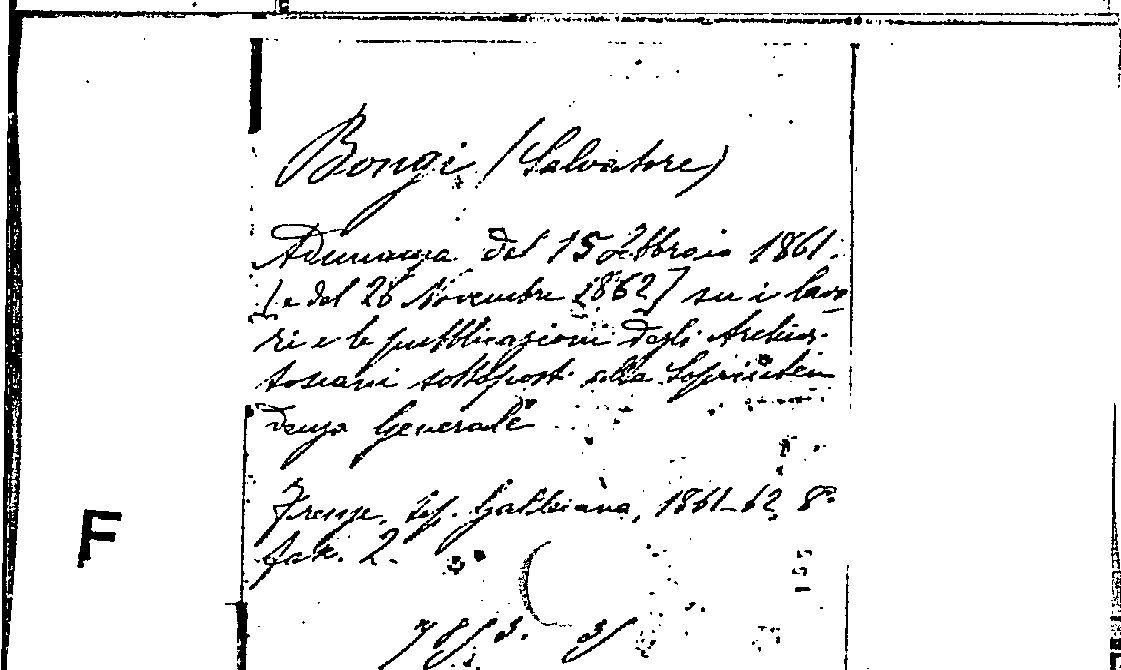 Bongi (Salvatore)
Adunanza del 15 Febbraio 1861.
[e del 26 Novembre 1862] su i lavo
ri e le pubblicazioni degli Archivi
toscani sottoposti alla Soprinten
denza Generale
Firenze, tip. Galileiana, 1861-62, 8º
fasc. 2.
F